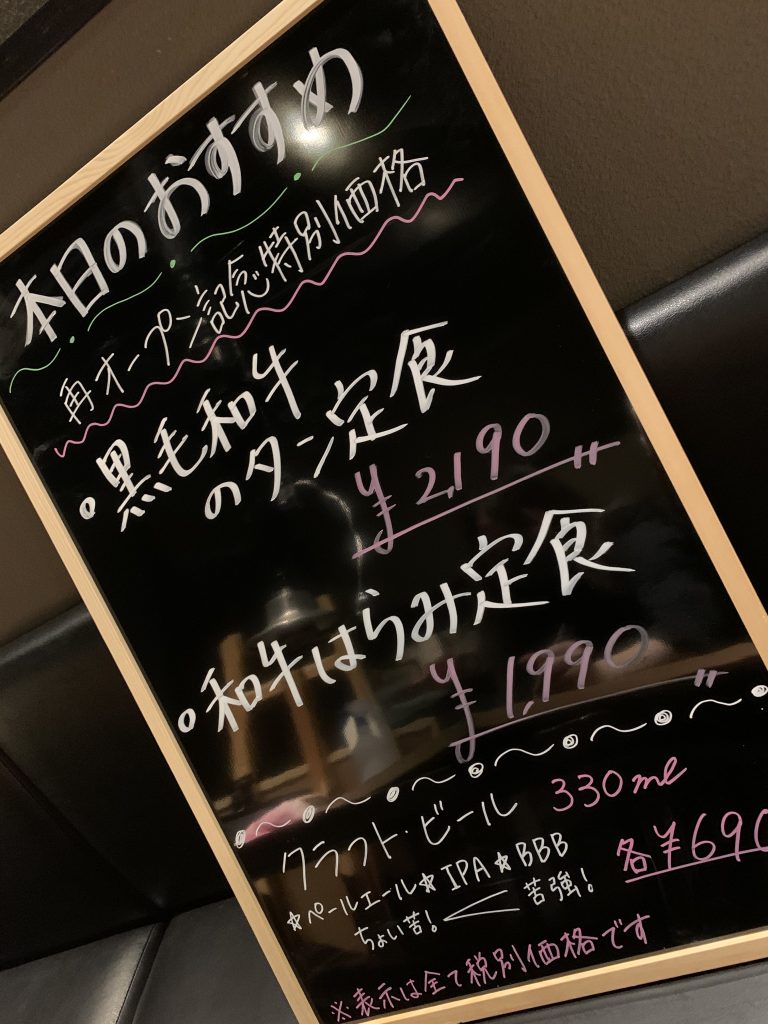 本日のおすすめ
再オープン記念特別価格
黒毛和牛
のタン定食
¥2,190
和牛はらみ定食
¥1,990
クラフト・ビール 330ml
☆ペールエール☆IPA☆BBB 各¥690
ちょい苦! 苦強!
※表示は全て税別価格です